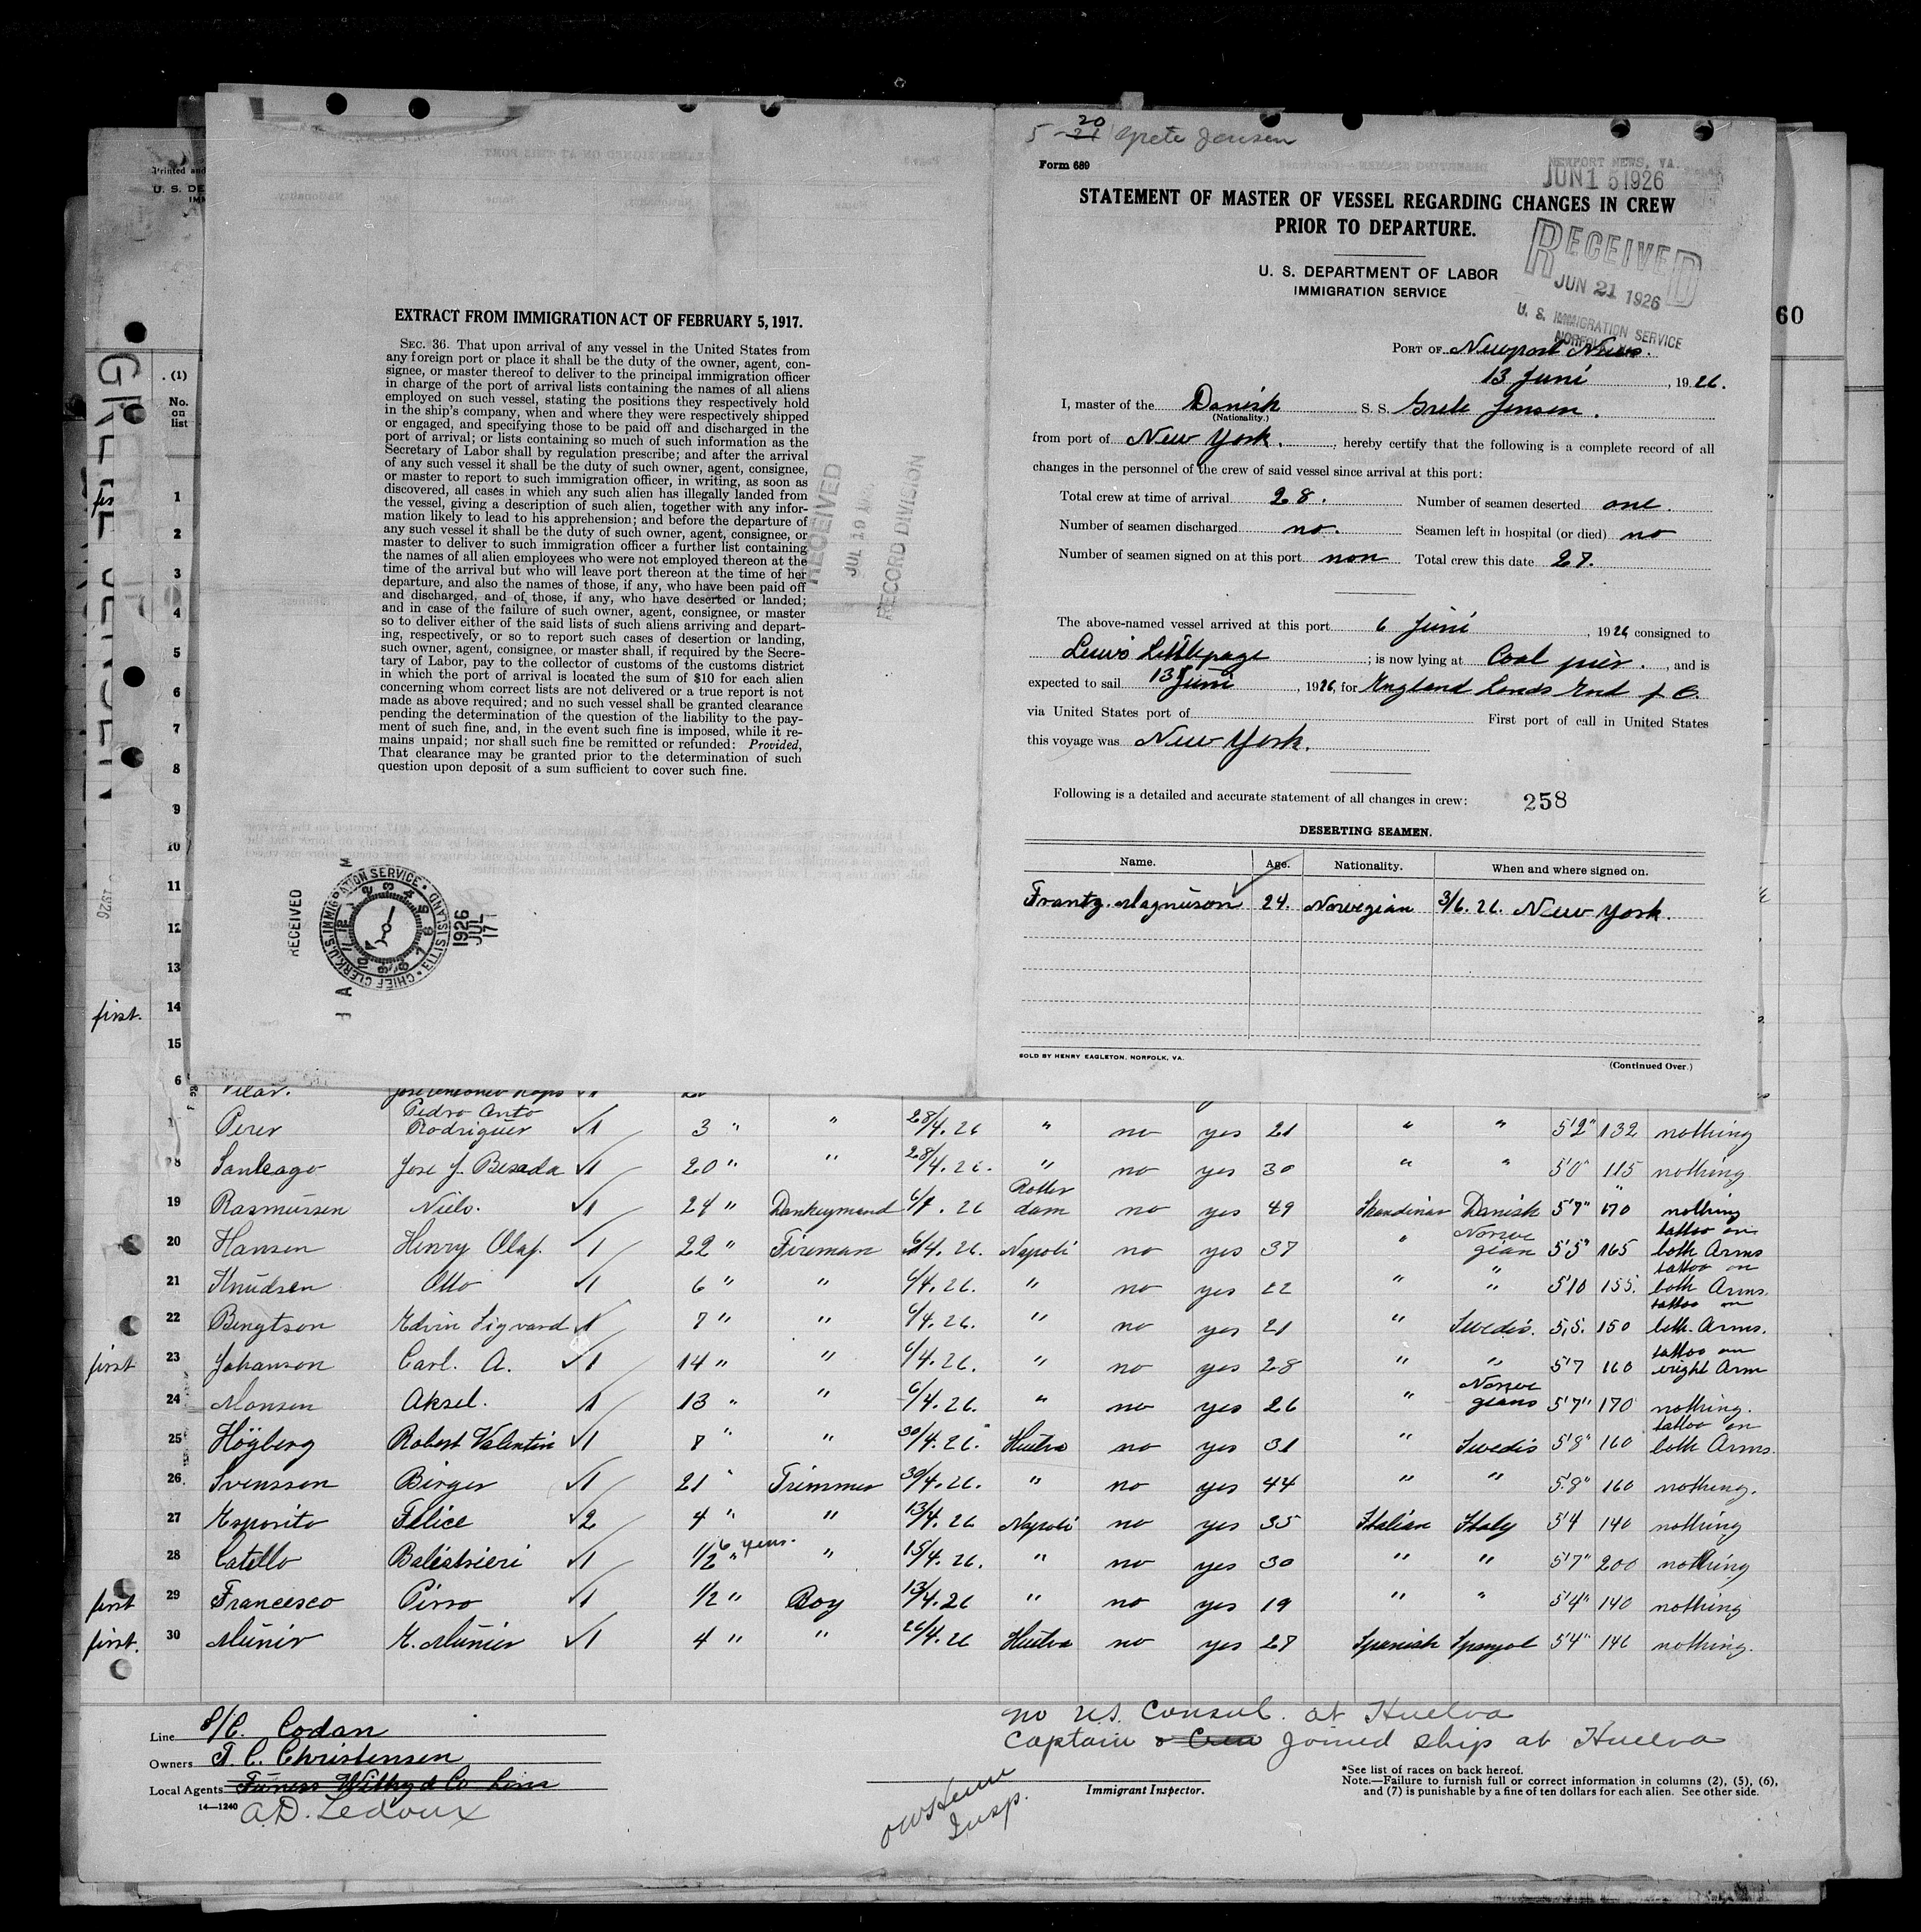 5 - 20 21 Grete Jensen
Form 689
NEWPORT NEWS, VA.
JUN 15 1926
STATEMENT OF MASTER OF VESSEL REGARDING CHANGES IN CREW
PRIOR TO DEPARTURE.
U. S. DEPARTMENT OF LABOR
IMMIGRATION SERVICE
RECEIVED
JUN 21 1926
U. S. IMMIGRATION SERVICE
NORFOLK, VA.
PORT OF Newport News.
13 Juni, 1926.
I, master of the Danish S. S. Grete Jensen.
(Nationality.)
from port of New York., hereby certify that the following is a complete record of all
changes in the personnel of the crew of said vessel since arrival at this port:
Total crew at time of arrival 28. Number of seamen deserted one.
Number of seamen discharged no. Seamen left in hospital (or died) no
Number of seamen signed on at this port non Total crew this date 27.
The above-named vessel arrived at this port 6 Juni, 1926 consigned to
Lewis Littlepage; is now lying at Coal pier., and is
expected to sail 13 Juni, 1926, for England Lands End f. O.
via United States port of First port of call in United States
this voyage was New York.
Following is a detailed and accurate statement of all changes in crew: 258
DESERTING SEAMEN.
Name. Age. Nationality. When and where signed on.
Frantz. Magnuson 24. Norwegian 3/6. 26. New York.
SOLD BY HENRY EAGLETON, NORFOLK, VA.
(Continued Over.)
EXTRACT FROM IMMIGRATION ACT OF FEBRUARY 5, 1917.
SEC. 36. That upon arrival of any vessel in the United States from
any foreign port or place it shall be the duty of the owner, agent, con-
signee, or master thereof to deliver to the principal immigration officer
in charge of the port of arrival lists containing the names of all aliens
employed on such vessel, stating the positions they respectively hold
in the ship's company, when and where they were respectively shipped
or engaged, and specifying those to be paid off and discharged in the
port of arrival; or lists containing so much of such information as the
Secretary of Labor shall by regulation prescribe; and after the arrival
of any such vessel it shall be the duty of such owner, agent, consignee,
or master to report to such immigration officer, in writing, as soon as
discovered, all cases in which any such alien has illegally landed from
the vessel, giving a description of such alien, together with any infor-
mation likely to lead to his apprehension; and before the departure of
any such vessel it shall be the duty of such owner, agent, consignee, or
master to deliver to such immigration officer a further list containing
the names of all alien employees who were not employed thereon at the
time of the arrival but who will leave port thereon at the time of her
departure, and also the names of those, if any, who have been paid off
and discharged, and of those, if any, who have deserted or landed;
and in case of the failure of such owner, agent, consignee, or master
so to deliver either of the said lists of such aliens arriving and depart-
ing, respectively, or so to report such cases of desertion or landing,
such owner, agent, consignee, or master shall, if required by the Secre-
tary of Labor, pay to the collector of customs of the customs district
in which the port of arrival is located the sum of $10 for each alien
concerning whom correct lists are not delivered or a true report is not
made as above required; and no such vessel shall be granted clearance
pending the determination of the question of the liability to the pay-
ment of such fine, and, in the event such fine is imposed, while it re-
mains unpaid; nor shall such fine be remitted or refunded: Provided,
That clearance may be granted prior to the determination of such
question upon deposit of a sum sufficient to cover such fine.
RECEIVED
JUL 10
RECORD DIVISION
RECEIVED
CHIEF CLERK U.S. IMMIGRATION SERVICE ELLIS ISLAND
1926
JUL
17
Printed and
U. S. DE
60
(1)
No.
on
list
1
2
3
4
5
6
7
8
9
10
11
12
13
first. 14
15
6 Vilar.
Perer Pedro Anto Rodriguer √1 3 " " 28/4. 26 " no yes 21 " " 5'2" 132 nothing
8 Santeago Jose J. Besada √1 20 " " 28/4. 26. " no yes 30 " " 5'0" 115 nothing
19 Rasmussen Niels. √1 24 " Donkeymand 26 Rotterdam no yes 49 Skandinav Danish 5'7" 170 nothing
20 Hansen Henry Olaf. √1 22 " Fireman 6/4. 26. Napoli no yes 37 " Norwegian 5'5" 165 tattoo on both Arms
21 Knudsen Otto √1 6 " " 6/4. 26. " no yes 22 " " 5'10 155. tattoo on both Arms.
22 Bengtson Edvin Sigvard √1 7 " " 6/4. 26. " no yes 21 " Swedis. 5,5. 150 tattoo on both Arms.
first 23 Johanson Carl. A. √1 14 " " 6/4. 26. " no yes 28 " " 5'7 160 tattoo on wright Arm
24 Monsen Aksel. √1 13 " " 6/4. 26. " no yes 26 " Norwegians 5'7" 170 nothing.
25 Högberg Robert Valentin √1 8 " " 30/4. 26. Huelva no yes 31 " Swedis 5'8" 160 tattoo on both Arms.
26 Svensson Birger √1 21 " Trimmer 30/4. 26. " no yes 44 " " 5'8" 160 nothing.
27 Esposito Felice √2 4 " " 13/4. 26 Napoli no yes 35 Italian Italy 5'4 140 nothing
28 Catello Balestrieri √1 1/2 " 6 years. " 15/4. 26. " no yes 30 " " 5'7" 200 nothing
first 29 Francesco Pirro √1 1/2 " Boy 13/4. 26 " no yes 19 " " 5'4" 140 nothing
first. 30 Munir E. Munier √1 4 " " 26/4. 26 Huelva no yes 27 Spanish Spanjol 5'4" 146 nothing.
Line S/C. Codan
Owners T. C. Christensen
Local Agents Furness Withy & Co Lines
14—1240 A.D. Ledoux
no U.S. Consul. at Huelva
Captain & Crew joined ship at Huelva
Insp.
Immigrant Inspector.
*See list of races on back hereof.
NOTE.—Failure to furnish full or correct information in columns (2), (5), (6),
and (7) is punishable by a fine of ten dollars for each alien. See other side.